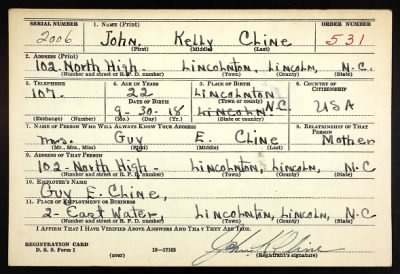 SERIAL NUMBER 1. NAME (Print) ORDER NUMBER
2006 John Kelly Cline 531
(First) (Middle) (Last)
2. ADDRESS (Print)
102 North High. Lincolnton, Lincoln, N.C.
(Number and street or R. F. D. number) (Town) (County) (State)
3. TELEPHONE 4. AGE IN YEARS 5. PLACE OF BIRTH 6. COUNTRY OF CITIZENSHIP
107. 22 Lincolnton
DATE OF BIRTH (Town or county)
9-30-18 Lincoln N.C. USA
(Exchange) (Number) (Mo.) (Day) (Yr.) (State or country)
7. NAME OF PERSON WHO WILL ALWAYS KNOW YOUR ADDRESS 8. RELATIONSHIP OF THAT PERSON
Mrs. Guy E. Cline Mother
(Mr., Mrs., Miss) (First) (Middle) (Last)
9. ADDRESS OF THAT PERSON
102-North High- Lincolnton, Lincoln, N.C
(Number and street or R. F. D. number) (Town) (County) (State)
10. EMPLOYER'S NAME
Guy E. Cline,
11. PLACE OF EMPLOYMENT OR BUSINESS
2-East Water, Lincolnton, Lincoln, N.C
(Number and street or R. F. D. number) (Town) (County) (State)
I AFFIRM THAT I HAVE VERIFIED ABOVE ANSWERS AND THAT THEY ARE TRUE.
REGISTRATION CARD
D. S. S. Form 1 16-17105 John K Cline
(over) (Registrant's signature)